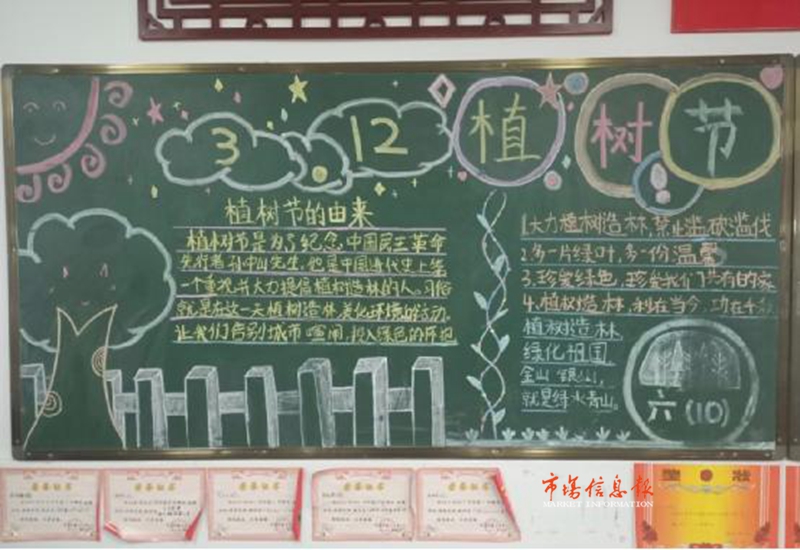 3.12
植树节
植树节的由来
植树节是为了纪念中国民主革命
先行者孙中山先生,他是中国近代史上第
一个重视并大力提倡植树造林的人。习俗
就是在这一天植树造林,美化环境的活动。
让我们告别城市喧闹,投入绿色的怀抱
1.大力植树造林,禁止滥砍滥伐
2.多一片绿叶,多一份温馨
3.珍爱绿色,珍爱我们共有的家
4.植树造林,利在当今,功在千秋
植树造林
绿化祖国
金山银山,
就是绿水青山。
六(10)
荣誉证书
荣誉证书
荣誉证书
荣誉证书
荣誉证书
市场信息报
MARKET INFORMATION
奖状